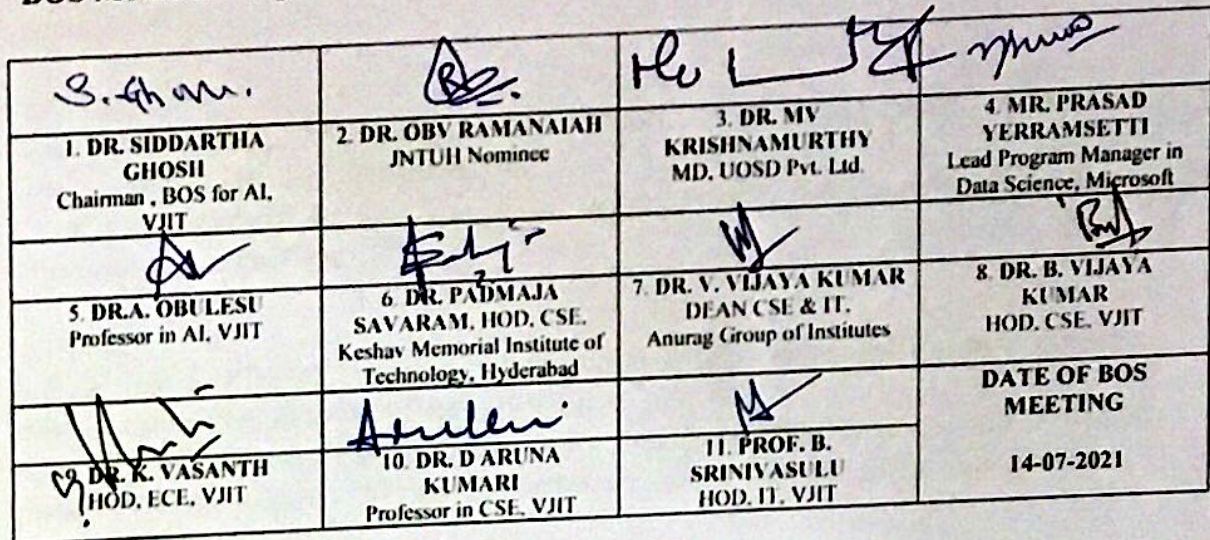 S. Ghosh.
1. DR. SIDDARTHA
GHOSH
Chairman , BOS for AI,
VJIT
2. DR. OBV RAMANAIAH
JNTUH Nominee
3. DR. MV
KRISHNAMURTHY
MD, UOSD Pvt. Ltd.
4. MR. PRASAD
YERRAMSETTI
Lead Program Manager in
Data Science, Microsoft
5. DR.A. OBULESU
Professor in AI, VJIT
6. DR. PADMAJA
SAVARAM, HOD, CSE,
Keshav Memorial Institute of
Technology, Hyderabad
7. DR. V. VIJAYA KUMAR
DEAN CSE & IT,
Anurag Group of Institutes
8. DR. B. VIJAYA
KUMAR
HOD, CSE, VJIT
DR. K. VASANTH
HOD, ECE, VJIT
10. DR. D ARUNA
KUMARI
Professor in CSE, VJIT
11. PROF. B.
SRINIVASULU
HOD, IT, VJIT
DATE OF BOS
MEETING
14-07-2021